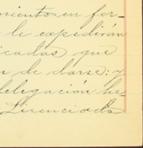 miento en for-
le expedirán
icadas que
n de darse: y
delegación he
Licenciado